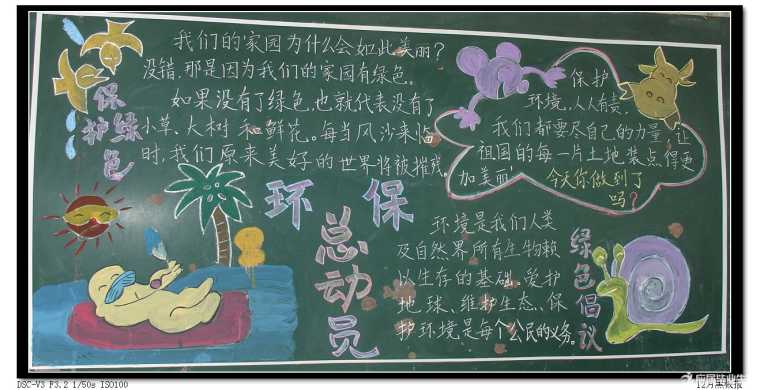 我们的家园为什么会如此美丽？
没错,那是因为我们的家园有绿色。
如果没有了绿色,也就代表没有了
小草、大树和鲜花。每当风沙来临
时,我们原来美好的世界将被摧残。
保护绿色
保护
环境,人人有责。
我们都要尽自己的力量,让
祖国的每一片土地,装点得更
加美丽!
今天你做到了
吗?
环保
总动员
环境是我们人类
及自然界所有生物赖
以生存的基础。爱护
地球、维护生态、保
护环境是每个公民的义务。
绿色倡议
DSC-V3 F3.2 1/50s ISO100
应届毕业生